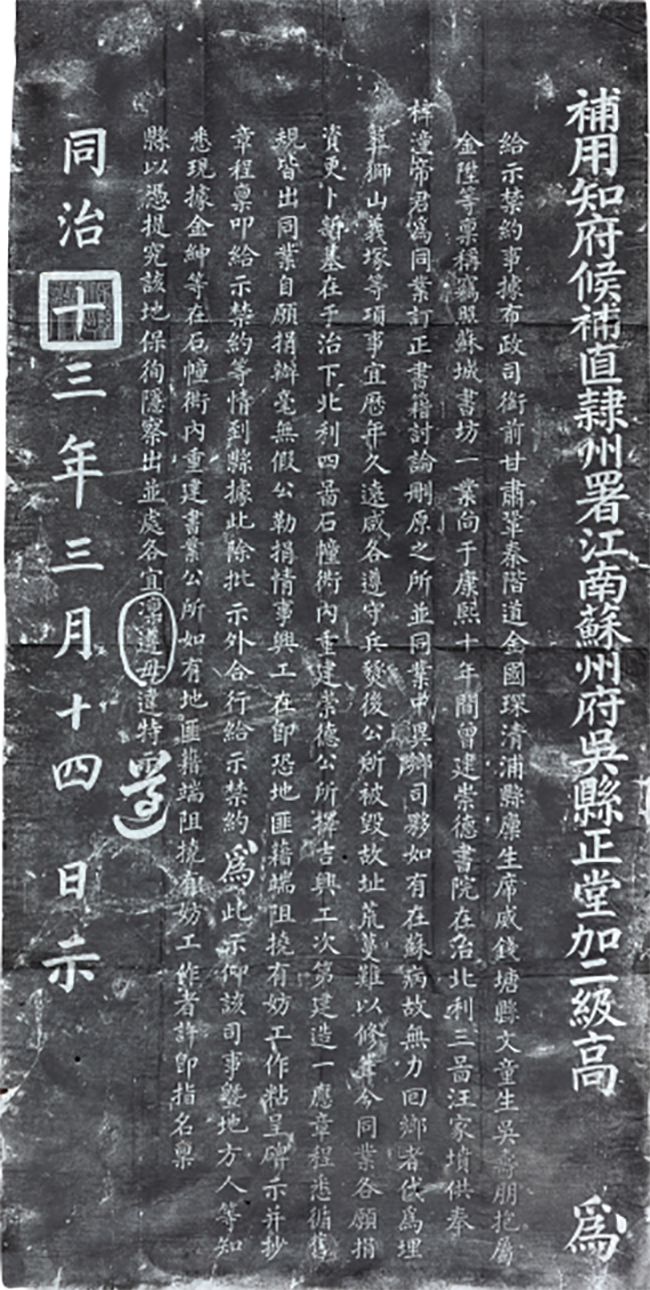 補用知府候補直隸州署江南蘇州府吳縣正堂加二級高 爲
給示禁約事據布政司銜前甘肅鞏秦階道金國琛清浦縣廩生席威錢塘縣文童生吳壽朋抱屬
金陞等稟稱竊照蘇城書坊一業向于康熙十年間曾建崇德書院在治北利三啚汪家墳供奉
梓潼帝君爲同業訂正書籍討論刪原之所並同業中異鄉司夥如有在蘇病故無力回鄉者代爲埋
葬獅山義塚等項事宜歷年久遠咸各遵守兵燹後公所被毀故址荒蔓難以修葺今同業各願捐
資更卜新基在于治下北利四啚石幢衖內重建崇德公所擇吉興工次第建造一應章程悉循舊
規皆出同業自願捐辦毫無假公勒捐情事興工在卽恐地匪藉端阻撓有妨工作粘呈碑示并抄
章程稟叩給示禁約等情到縣據此除批示外合行給示禁約爲此示仰該司事曁地方人等知
悉現據金紳等在石幢衖內重建書業公所如有地匪藉端阻撓有妨工作者許卽指名稟
縣以憑提究該地保徇隱察出並處各宜凜遵毋違特示 遵
同治十三年三月十四 日示